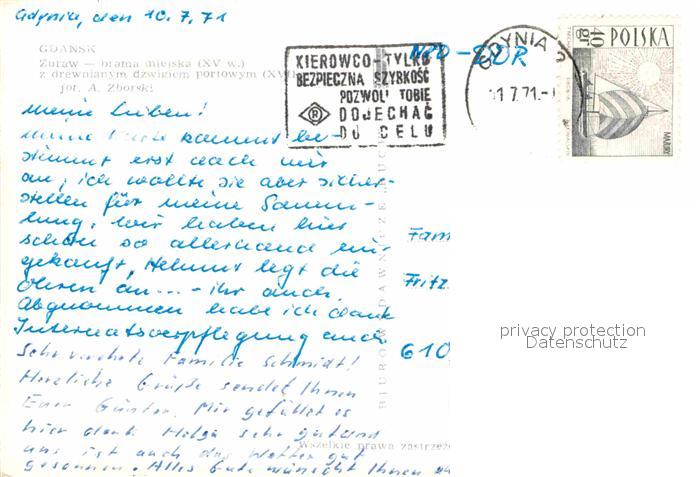 Gdynia, den 10.7.71
GDAŃSK
Żuraw — brama miejska (XV w.)
z drewnianym dźwigiem portowym (XV
fot. A. Zborski
KIEROWCO-TYLKO
BEZPIECZNA SZYBKOŚĆ
POZWOLI TOBIE
DOJECHAĆ
DO CELU
R
NPD-DDR
GDYNIA 2
11.7.71.-
40 gr
POLSKA
Meine Lieben!
Meine Karte kommt be-
stimmt erst nach mir
an; ich wollte sie aber sicher-
stellen für meine Samm-
lung; wir haben hier
schon so allerhand ein-
gekauft, Helmut legt die
Ohren an... - ihr auch.
Abgenommen habe ich dank
Internatsverpflegung auch
Sehr verehrte Familie Schmidt!
Herzliche Grüße sendet Ihnen
Euer Günter. Mir gefällt es
hier dank Helga sehr gut und
uns ist auch das Wetter gut
gesonnen. Alles Gute wünscht Ihnen
Fam
Fritz
610
BIURO WYDAWNICZE RUCH
Wszelkie prawa zastrzeż
privacy protection
Datenschutz